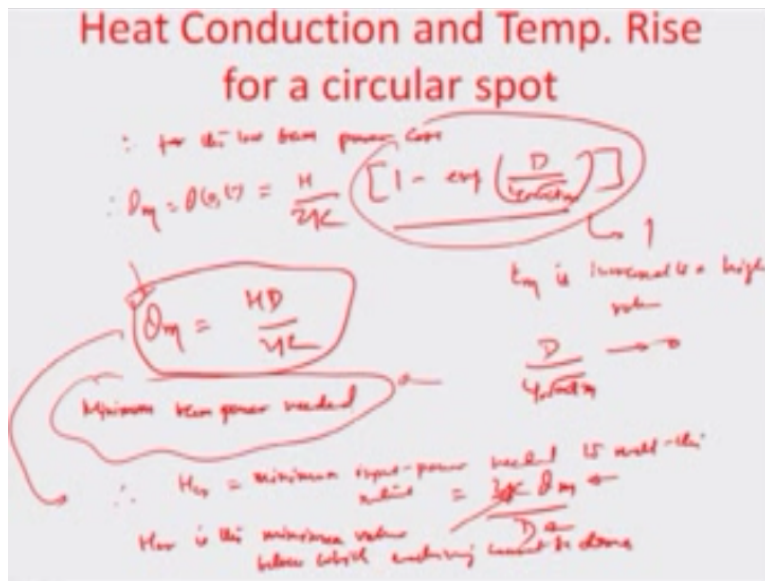 Heat Conduction and Temp. Rise
for a circular spot
∴ for the low beam power case
∴ θm = θ(0,t) = H/2K [1 - erf (D/4√αtm)]
↳ 1
tm is increased to a high
value
θm = HD/2K
D/4√αtm → 0
Minimum beam power needed
∴ Hcr = minimum input-power needed to melt the
= 2K θm / D
Hcr is the minimum value
below which cannot be done